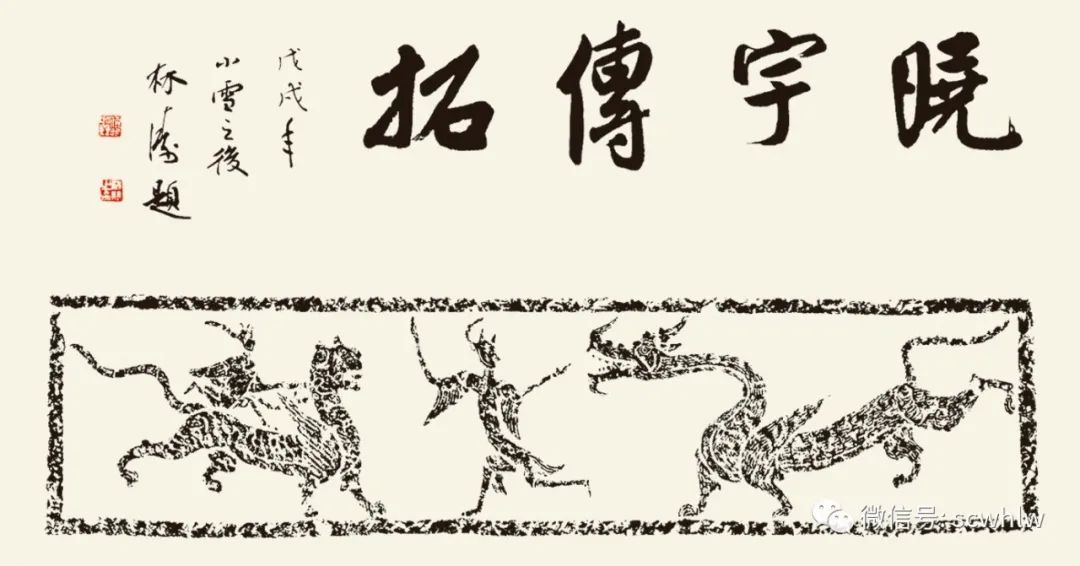 曉宇傳拓
戊戌年
小雪之後
林濤題
微信号: scwhlw